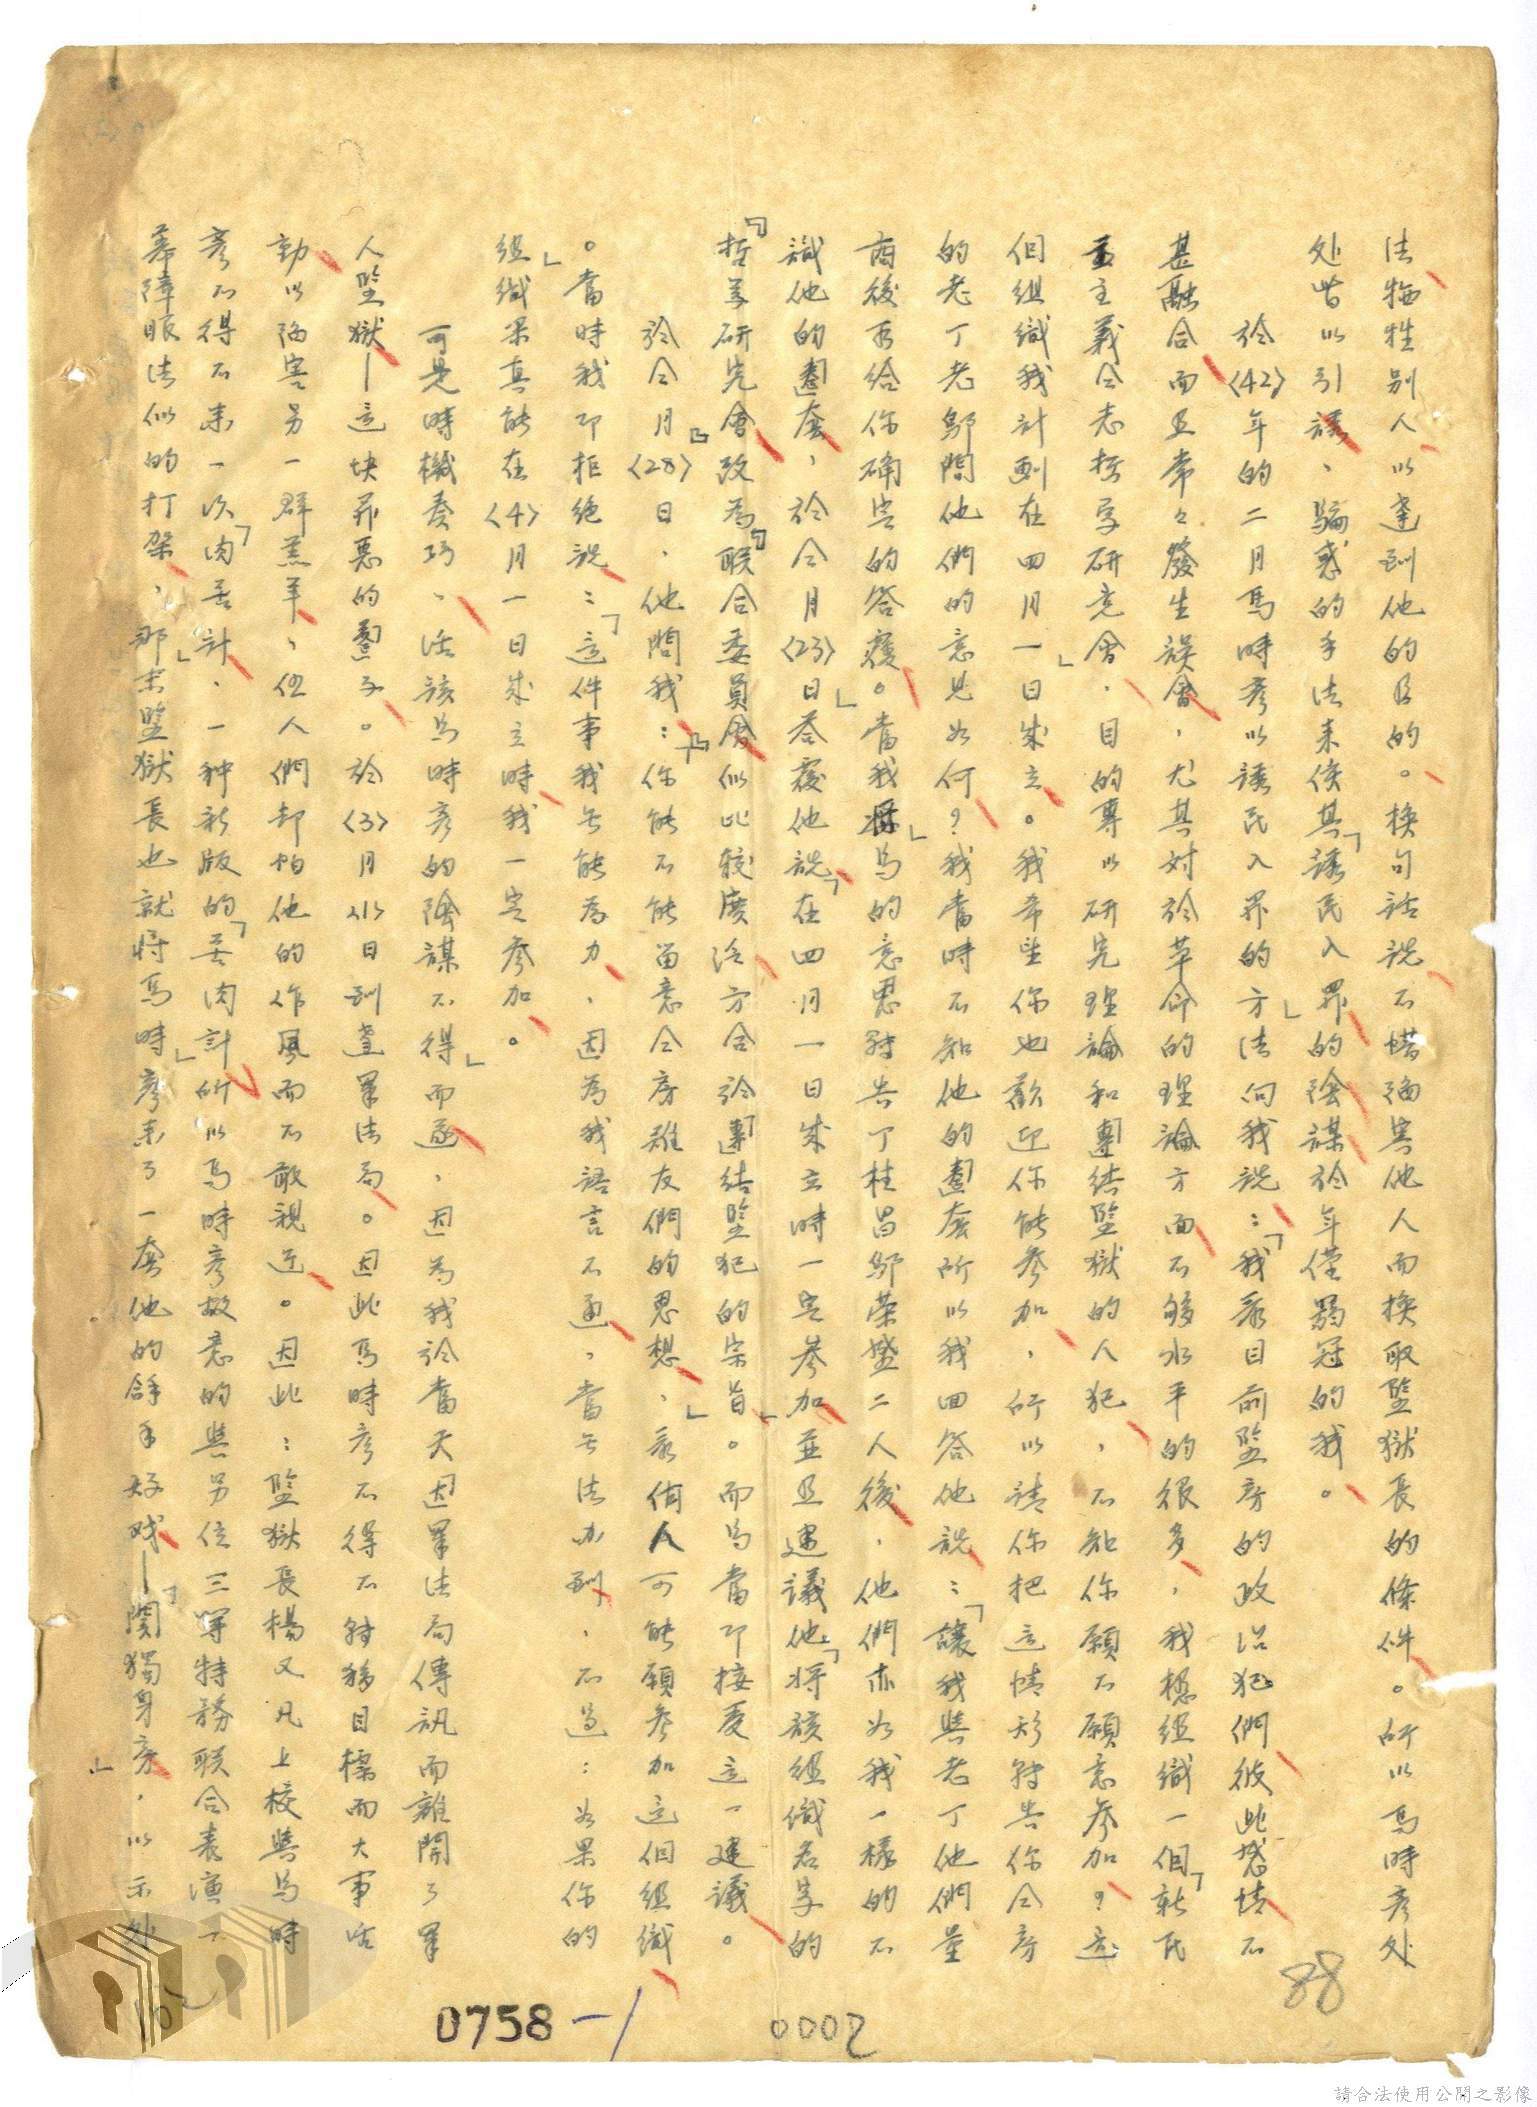 法牺牲別人以達到他的目的。換句話說不惜陷害他人而換取監獄長的條件。所以馬時彥处
处皆以引誘、騙惑的手法來使其「誘民入罪」的陰謀於年僅弱冠的我。
於〈42〉年的二月馬時彥以誘民入罪的方法向我說：「我承目前監房的政治犯們彼此感情不
甚融合而且常々發生誤會，尤其对於革命的理論方面不够水平的很多，我想組織一個「新民
主主義仝志哲学研究會」，目的專以研究理論和團結監獄的人犯，不知你願不願意參加？這
個組織我計劃在四月一日成立。我希望你也歡迎你能參加，所以請你把這情形轉告你仝房
的老丁老鄔問他們的意見如何？」我當時不知他的圈套所以我回答他說：「讓我與老丁他們量
商後再給你确实的答覆。」當我將馬的意思轉告丁桂昌鄔荣盛二人後，他們亦如我一樣的不
識他的圈套，於仝月〈23〉日答覆他說「在四月一日成立時一定參加並且建議他將該組織名字的
『哲学研究會』改為『联合委員會』似比較廣泛方合於團結監犯的宗旨」。而馬當即接受這一建議。
於仝月〈28〉日，他問我：「你能不能留意仝房难友們的思想，承何人可能願參加這個組織
。」當時我即拒绝說：「這件事我无能為力，因為我語言不通，當无法办到，不過：如果你的
組織果真能在〈4〉月一日成立時我一定參加。」
可是時機奏巧，活該馬時彥的陰謀不得而逐，因為我於當天因軍法局傳訊而離開了軍
人監獄—這块罪惡的圈子。於〈3〉月〈31〉日到達軍法局。因此馬時彥不得不轉移目標而大事活
動以陷害另一群羔羊，但人們却怕他的作風而不敢親近。因此：監獄長楊又凡上校與馬時
彥不得不來一次「肉苦計」，一种新版的「苦肉計」所以馬時彥故意的與另位三軍特務联合表演一
幕障眼法似的打架，那末監獄長也就將馬時彥來了一套他的餘手好戏—「関獨身房」，以示处
88
0758-1
0002
102
請合法使用公開之影像